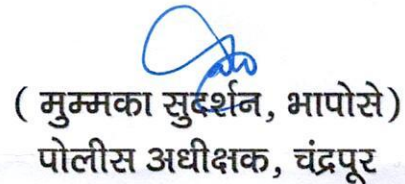 ( मुम्मका सुदर्शन, भापोसे)
पोलीस अधीक्षक, चंद्रपूर